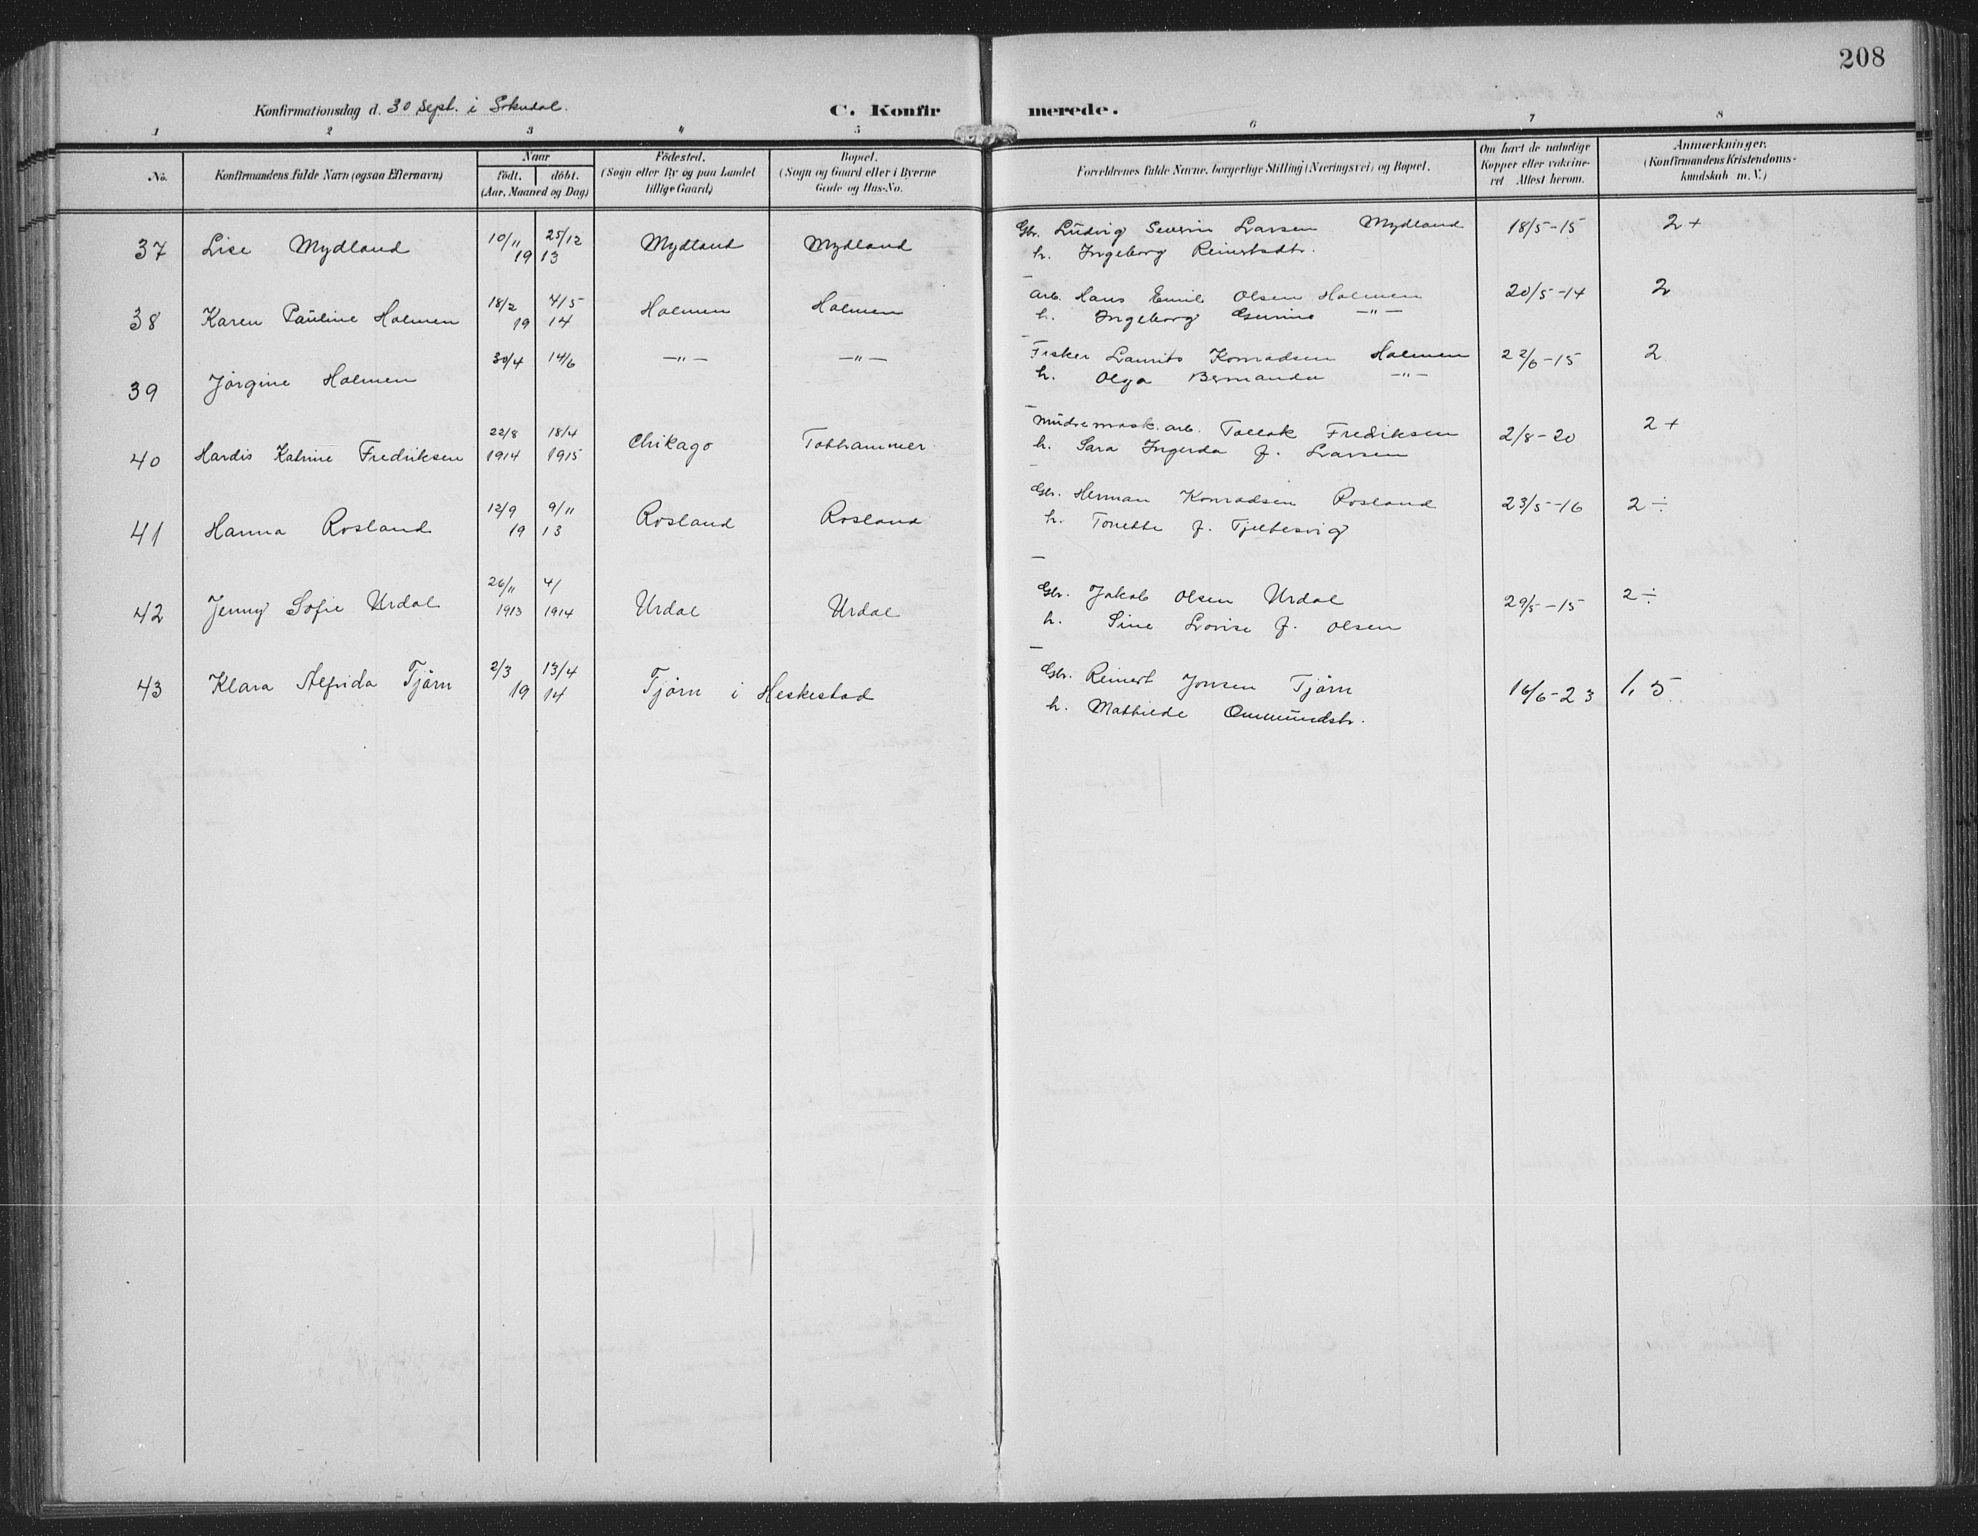 208
Konfirmationsdag d. 30 Sept. i Sokndal.
C. Konfirmerede.
1 2 3 4 5 6 7 8
No.
Konfirmandens fulde Navn (ogsaa Efternavn)
Naar
født. døbt.
(Aar, Maaned og Dag)
Fødested.
(Sogn eller By og paa Landet
tillige Gaard)
Bopæl.
(Sogn og Gaard eller i Byerne
Gade og Hus-No.
Forældrenes fulde Navne, borgerlige Stilling (Næringsvei) og Bopæl.
Om havt de naturlige
Kopper eller vakcine-
ret Attest herom.
Anmærkninger.
(Konfirmandens Kristendoms-
kundskab m. V.)
37 Lise Mydland 10/11 25/12 Mydland Mydland Gbr. Ludvig Severin Larsen Mydland 18/5-15 2+
19 13 h. Ingeborg Reinertsdtr.
38 Karen Pauline Holmen 18/2 4/5 Holmen Holmen Arb. Hans Emil Olsen Holmen 20/5-14 2
19 14 h. Ingeborg Gurine -"-
39 Jørgine Holmen 30/4 14/6 -"- -"- Fisker Laurits Konradsen Holmen 22/6-15 2
h. Olga Bernanda -"-
40 Hardis Katrine Fredriksen 22/8 18/4 Chikago Tothammer Mudremask.arb. Tollak Fredriksen 2/8-20 2+
1914 1915 h. Sara Ingerda f. Larsen
41 Hanna Rosland 12/9 9/11 Rosland Rosland Gbr. Herman Konradsen Rosland 23/5-16 2÷
19 13 h. Tonette f. Tjeltesvig
42 Jenny Sofie Urdal 26/11 4/ Urdal Urdal Gbr. Jakob Olsen Urdal 29/5-15 2÷
1913 1914 h. Sine Lovise f. Olsen
43 Klara Alfrida Tjørn 2/3 13/4 Tjørn i Heskestad Gbr. Reinert Jonsen Tjørn 16/6-23 1,5
19 14 h. Mathilde Ommundsdtr.